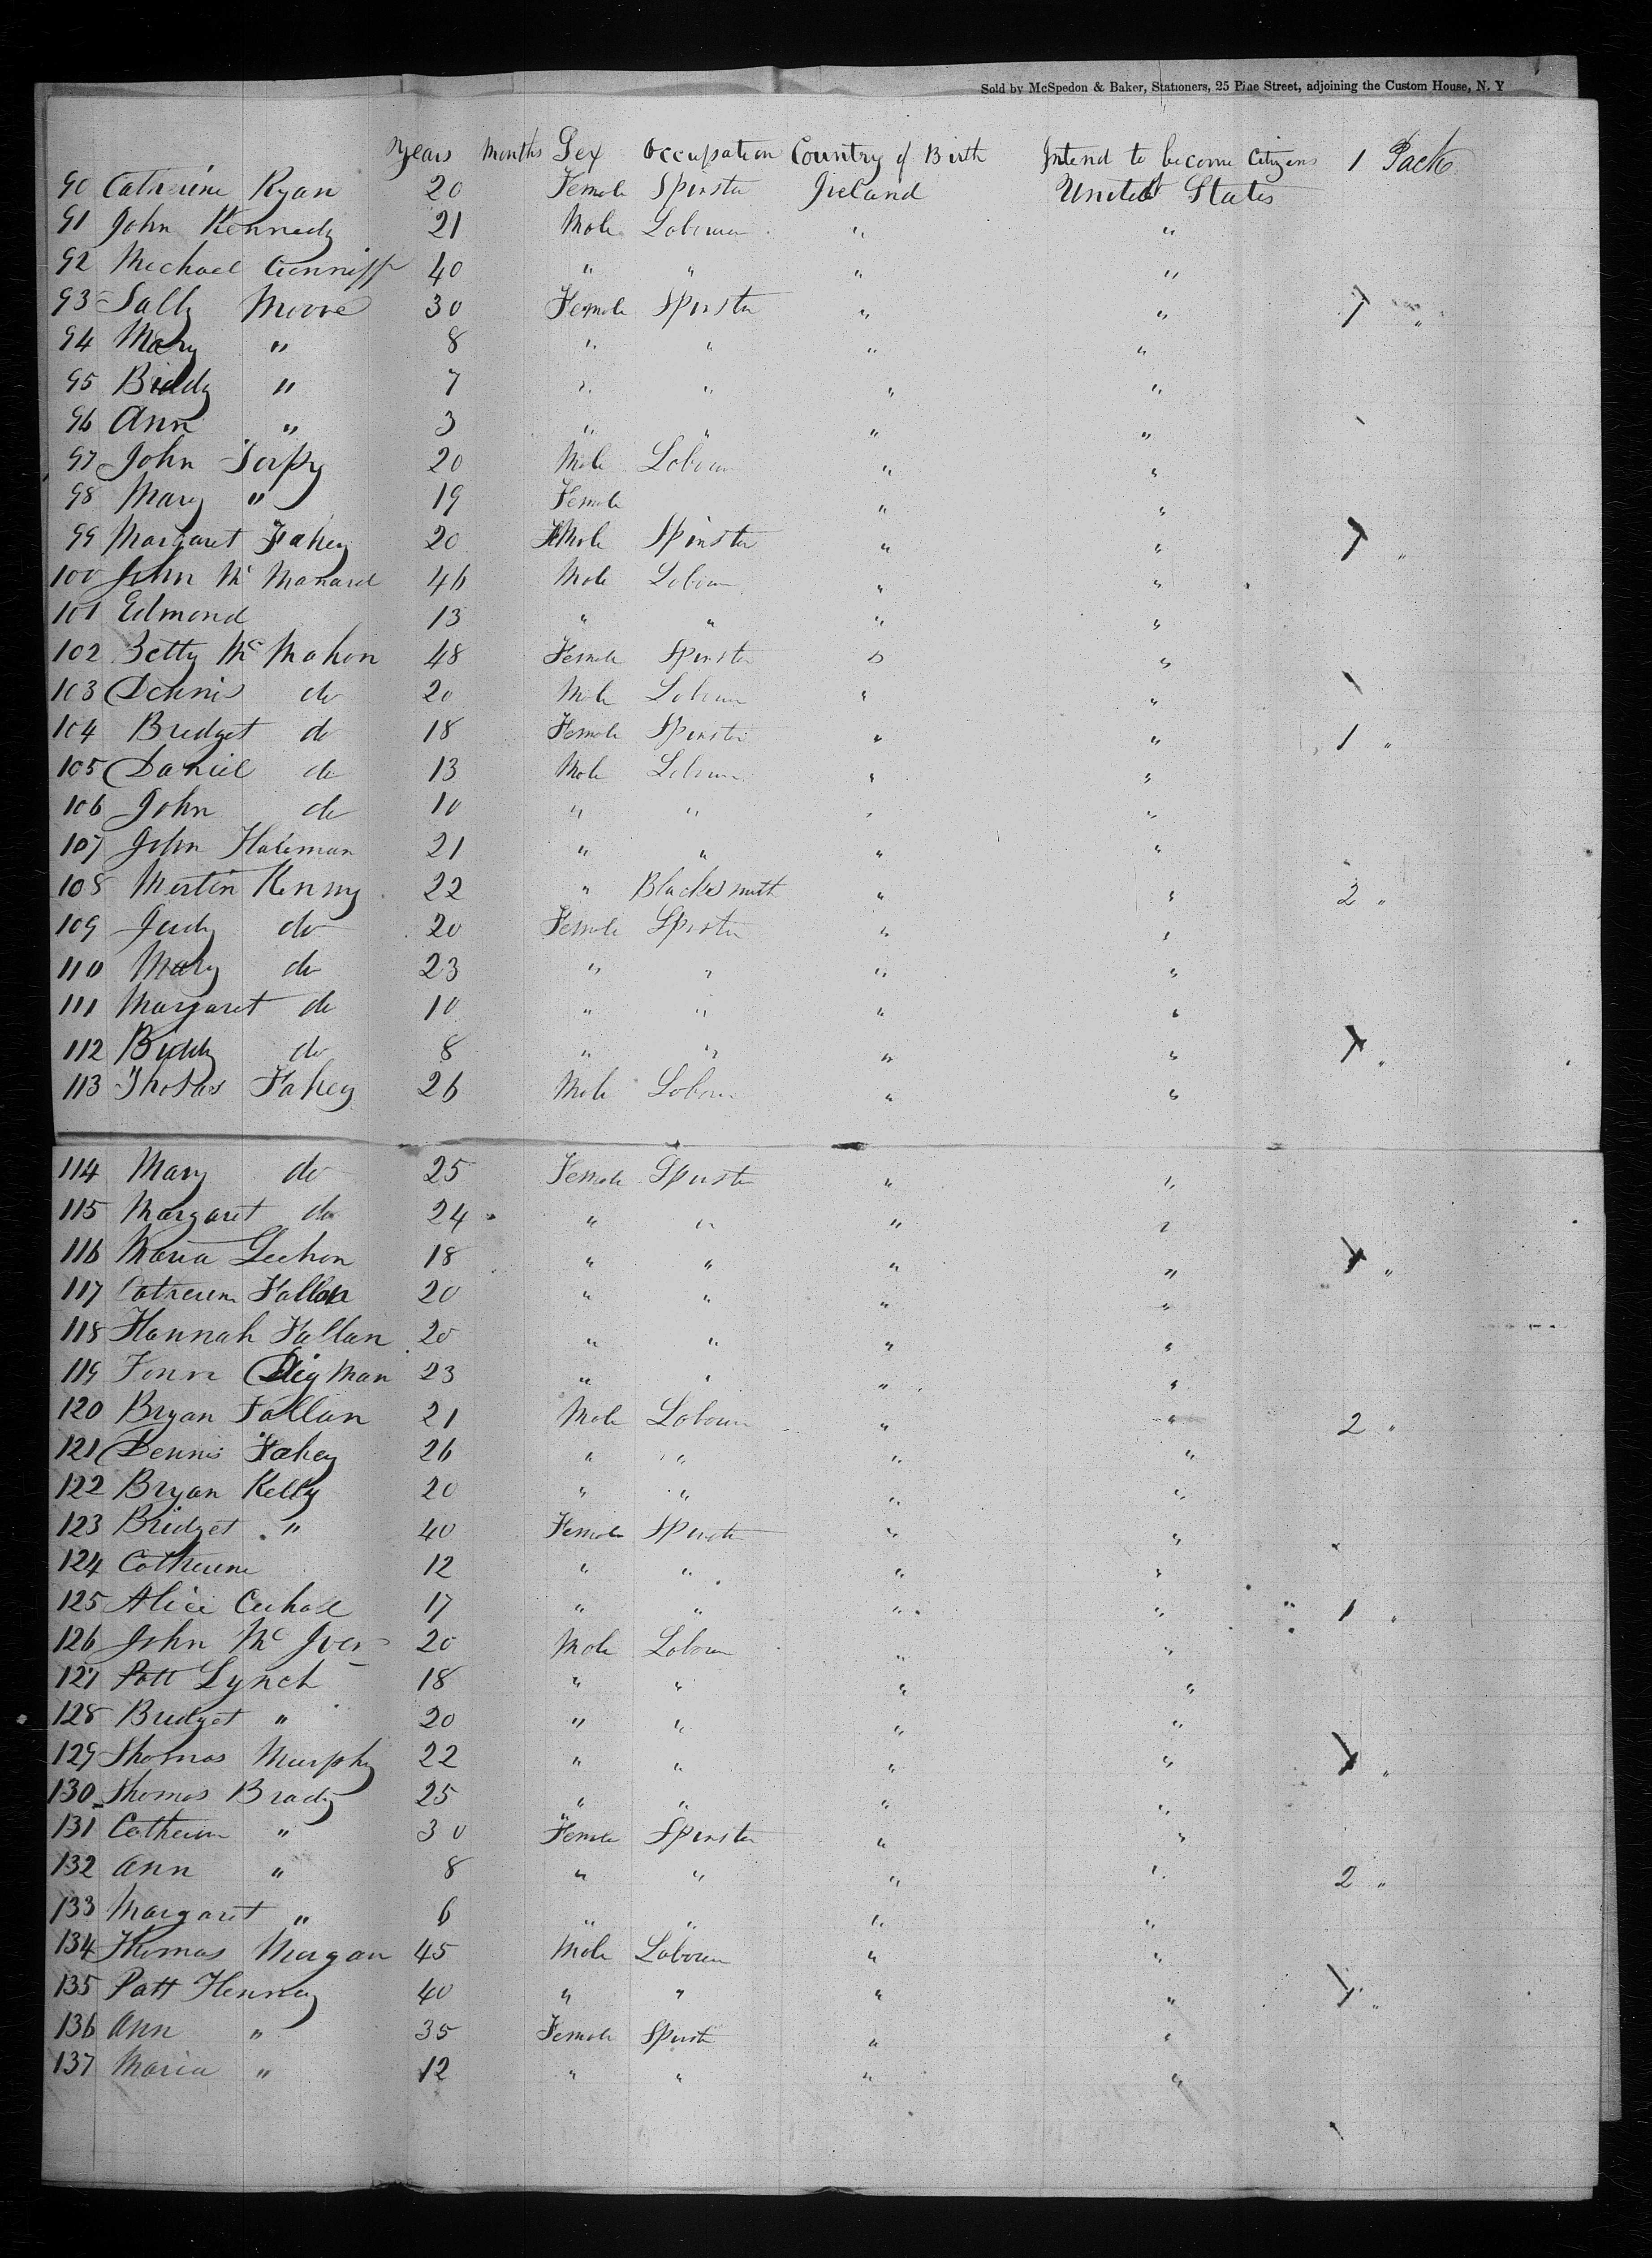 Sold by McSpedon & Baker, Stationers, 25 Pine Street, adjoining the Custom House, N. Y
Years Months Sex Occupation Country of Birth Intend to become Citizens 1 Pack
90 Catherine Ryan 20 Female Spinster Ireland United States
91 John Kennedy 21 Male Labourer " "
92 Michael Cunniff 40 " " " "
93 Sally Moore 30 Female Spinster " " 1 "
94 Mary " 8 " " " "
95 Biddy " 7 " " " "
96 Ann " 3 " " " "
97 John Torpy 20 Male Labourer " "
98 Mary " 19 Female " "
99 Margaret Fahey 20 Female Spinster " " 1 "
100 John Mc 46 Male Labour " "
101 Edmond 13 " " " "
102 Betty Mc Mahon 48 Female Spinster " "
103 Dennis do 20 Male Labour " "
104 Bridget do 18 Female Spinster " " 1 "
105 Daniel do 13 Male Labour " "
106 John do 10 " " " "
107 John 21 " " " "
108 Martin Kenny 22 " Blacksmith " " 2 "
109 Judy do 20 Female Spinster " "
110 Mary do 23 " " " "
111 Margaret do 10 " " " "
112 Biddy do 8 " " " " 1 "
113 Thomas Fahey 26 Male Labour " "
114 Mary do 25 Female Spinster " "
115 Margaret do 24 " " " "
116 Maria 18 " " " " 1 "
117 Catherine Fallon 20 " " " "
118 Hannah Fallan 20 " " " "
119 23 " " " "
120 Bryan Fallan 21 Male Labour " " 2 "
121 Dennis Fahey 26 " " " "
122 Bryan Kelly 20 " " " "
123 Bridget " 40 Female Spinster " "
124 Catherine 12 " " " "
125 Alice 17 " " " " 1 "
126 John Mc Iver 20 Male Labour " "
127 Patt Lynch 18 " " " "
128 Bridget " 20 " " " "
129 Thomas Murphy 22 " " " " 1 "
130 Thomas Brady 25 " " " "
131 Catherine " 30 Female Spinster " "
132 Ann " 8 " " " " 2 "
133 Margaret " 6 " " " "
134 Thomas Morgan 45 Male Labourer " "
135 Patt Henney 40 " " " " 1 "
136 Ann " 35 Female Spinster " "
137 Maria " 12 " " " "